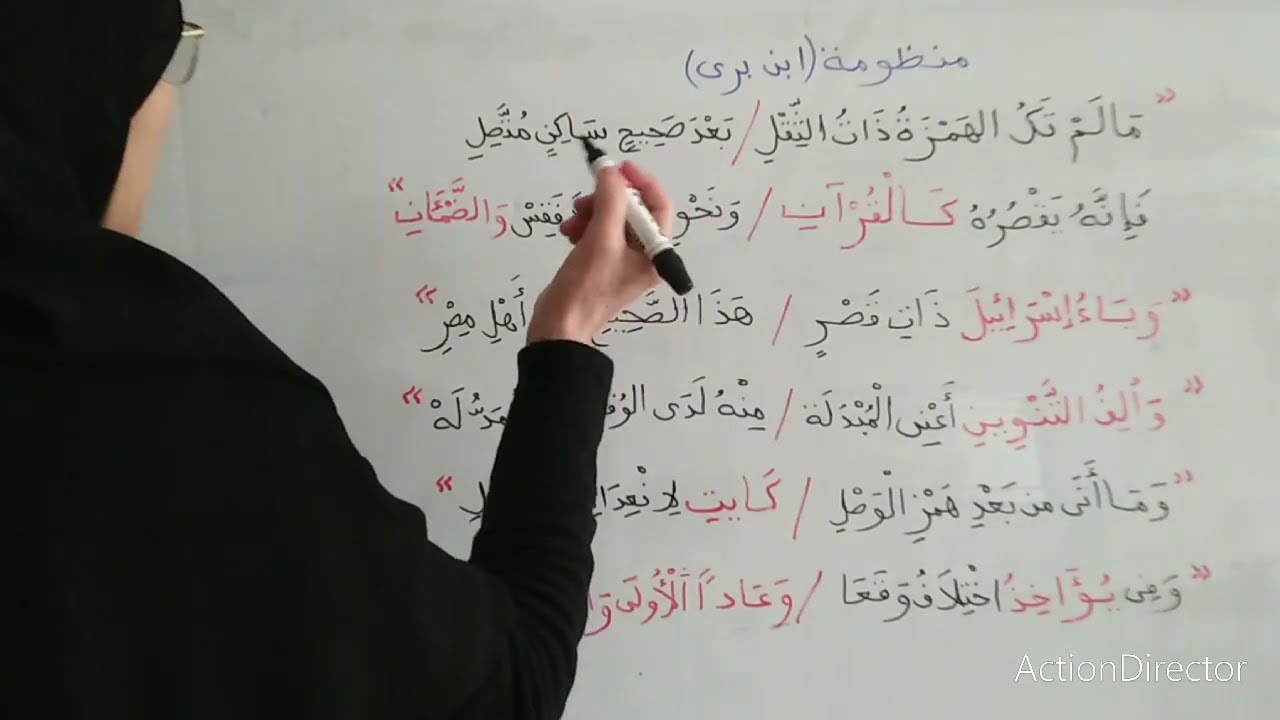 منظومة (ابن برى)
" مَالَمْ تَكُ الهَمْزَةُ ذَاتُ الثِّقْلِ / بَعْدَ صَحِيحٍ سَاكِنٍ مُتَّصِلِ
فَإِنَّهُ يَقْصُرُهُ كَالْقُرْآنِ / وَنَحْوِ فَقِسْ وَالضَّمْئَانِ "
" وَيَاءُ إِسْرَائِيلَ ذَاتِ قَصْرٍ / هَذَا الصَّحِيحُ أَهْلِ مِصْرِ "
" وَأَلِفُ التَّنْوِينِ أَعْنِى الْمُبْدَلَة / مِنْهُ لَدَى "
" وَمَا أَتَى مِن بَعْدِ هَمْزِ الْوَصْلِ / كَايتِ "
" وَفِى يُؤَاخِذُ اخْتِلَافُ وَقَعَا / وَعَاداً الْأُولَى
ActionDirector